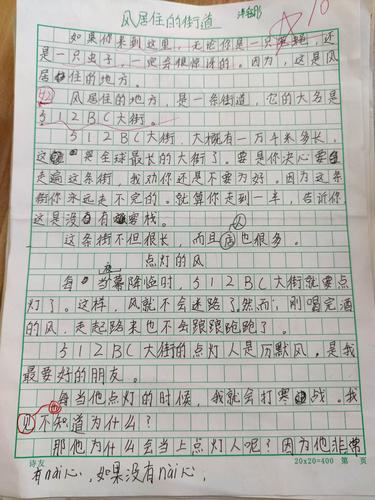 风居住的街道
如果你来到这里,无论你是一只 还
是一只虫子,一定会很惊讶的。因为,这是风
居住的地方。
风居住的地方,是一条街道,它的大名是
512BC大街。
512BC大街,大概有一万千米多长,
这 是全球最长的大街了。要是你决心要
走遍这条街,我劝你还是不要为好。因为这条
街你永远走不完的。就算你走到一半,告诉你
这是没有客栈。
这条街不但很长,而且店也很多。
点灯的风
每当夜幕降临时,512BC大街就要点
灯了。这样,风就不会迷路了。然而,刚喝完酒
的风,走起路来也不会踉踉跑跑了。
512BC大街的点灯人是历默风,是我
最要好的朋友。
每当他点灯的时候,我就会打寒战。我
也不知道为什么?
那他为什么会当上点灯人呢?因为他非常
有nài心,如果没有nài心,
诗友
20×20=400 第 页